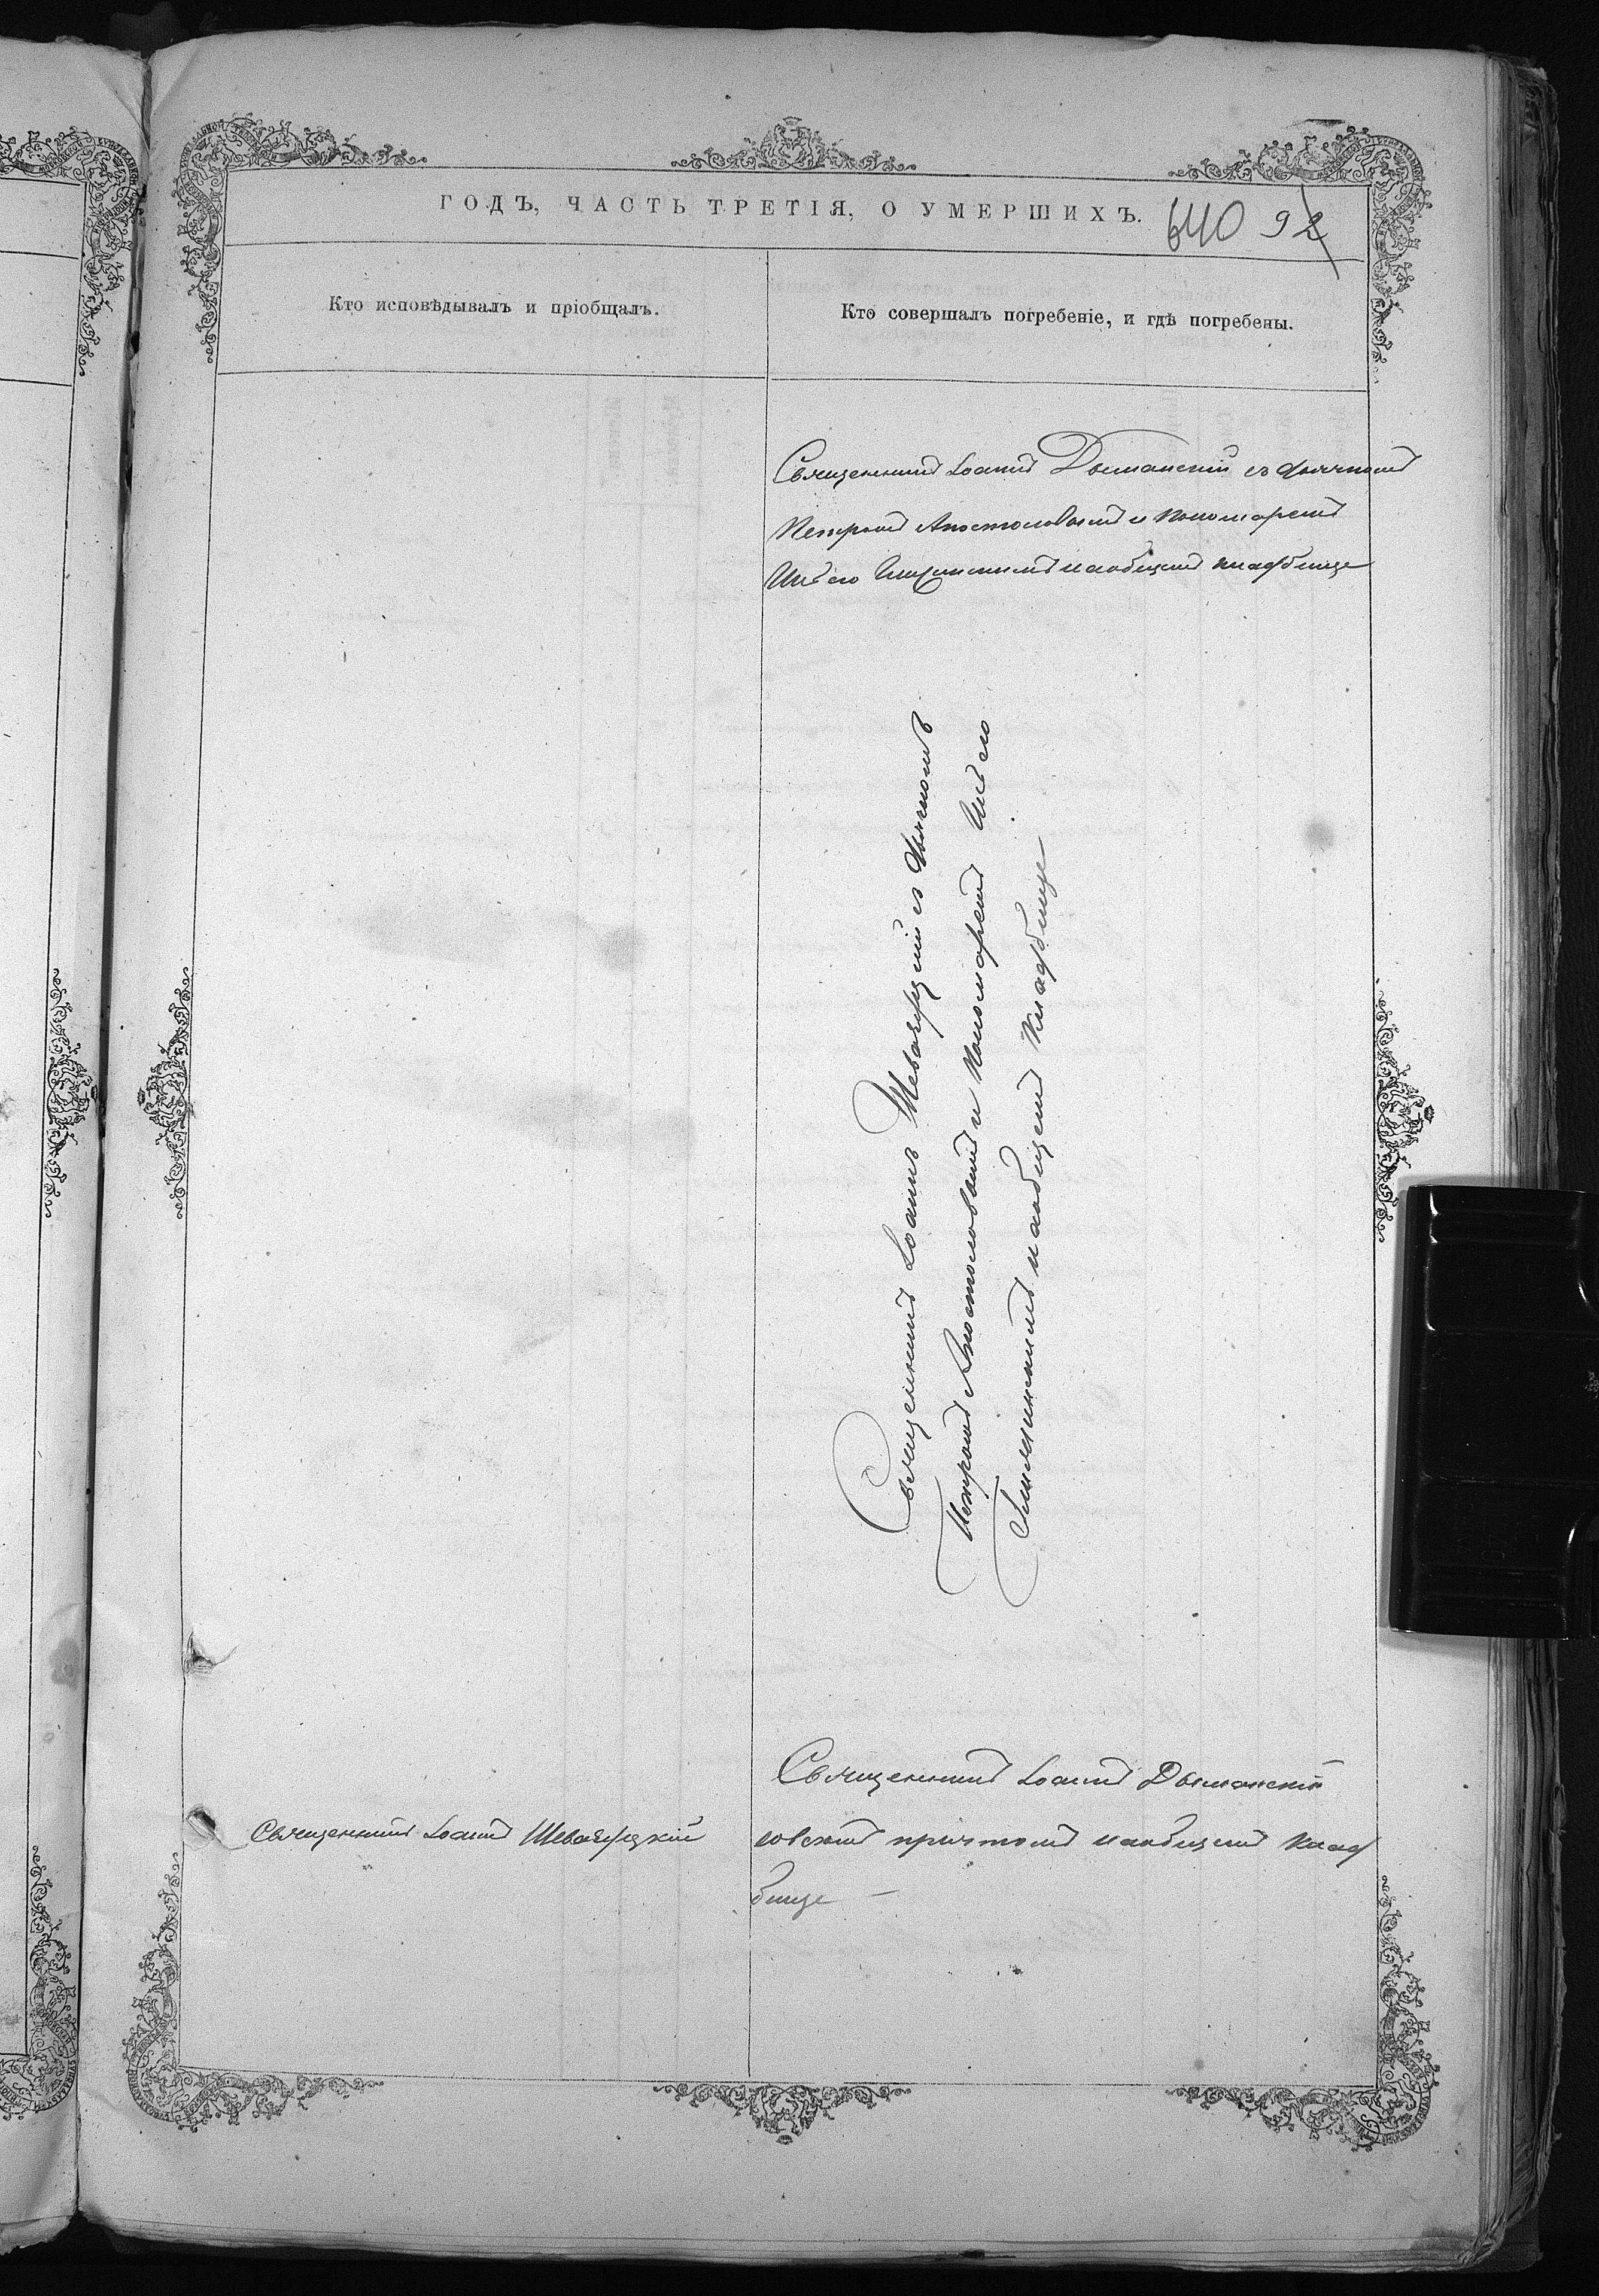 ГОДЪ, ЧАСТЬ ТРЕТІЯ, О УМЕРШИХЪ.
640 92
Кто исповѣдывалъ и пріобщалъ.
Кто совершалъ погребеніе, и гдѣ погребены.
Священникъ Іоаннъ Дыманскій съ дьячкомъ
Петромъ Апостоловымъ и пономаремъ
наобщемъ кладбище
Священникъ Іоаннъ Шеваруцкій съ дьячкомъ
Петромъ Апостоловымъ и пономаремъ
наобщемъ кладбище
Священникъ Іоаннъ Шеваруцкій
Священникъ Іоаннъ Дыманскій
совсемъ причтомъ наобщемъ клад
бище —